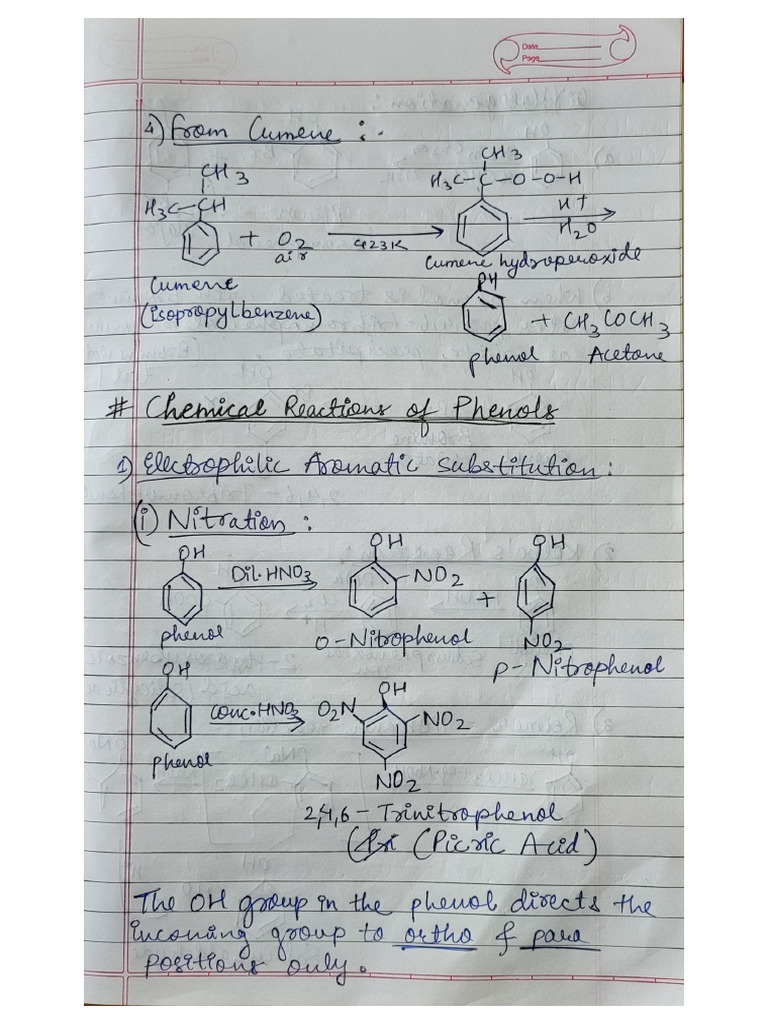 Date
Page
4) From Cumene :-
CH3
H3C-CH
+ O2
air
423K
CH3
H3C-C-O-O-H
H+
H2O
Cumene hydroperoxide
Cumene
(isopropylbenzene)
OH
+ CH3COCH3
phenol Acetone
# Chemical Reactions of Phenols
1) Electrophilic Aromatic Substitution:
(i) Nitration :
OH
Dil. HNO3
OH
NO2
+
OH
NO2
phenol
O-Nitrophenol
p-Nitrophenol
OH
conc. HNO3
O2N
OH
NO2
NO2
phenol
2,4,6-Trinitrophenol
(Picric Acid)
The OH group in the phenol directs the
incoming group to ortho & para
positions only.